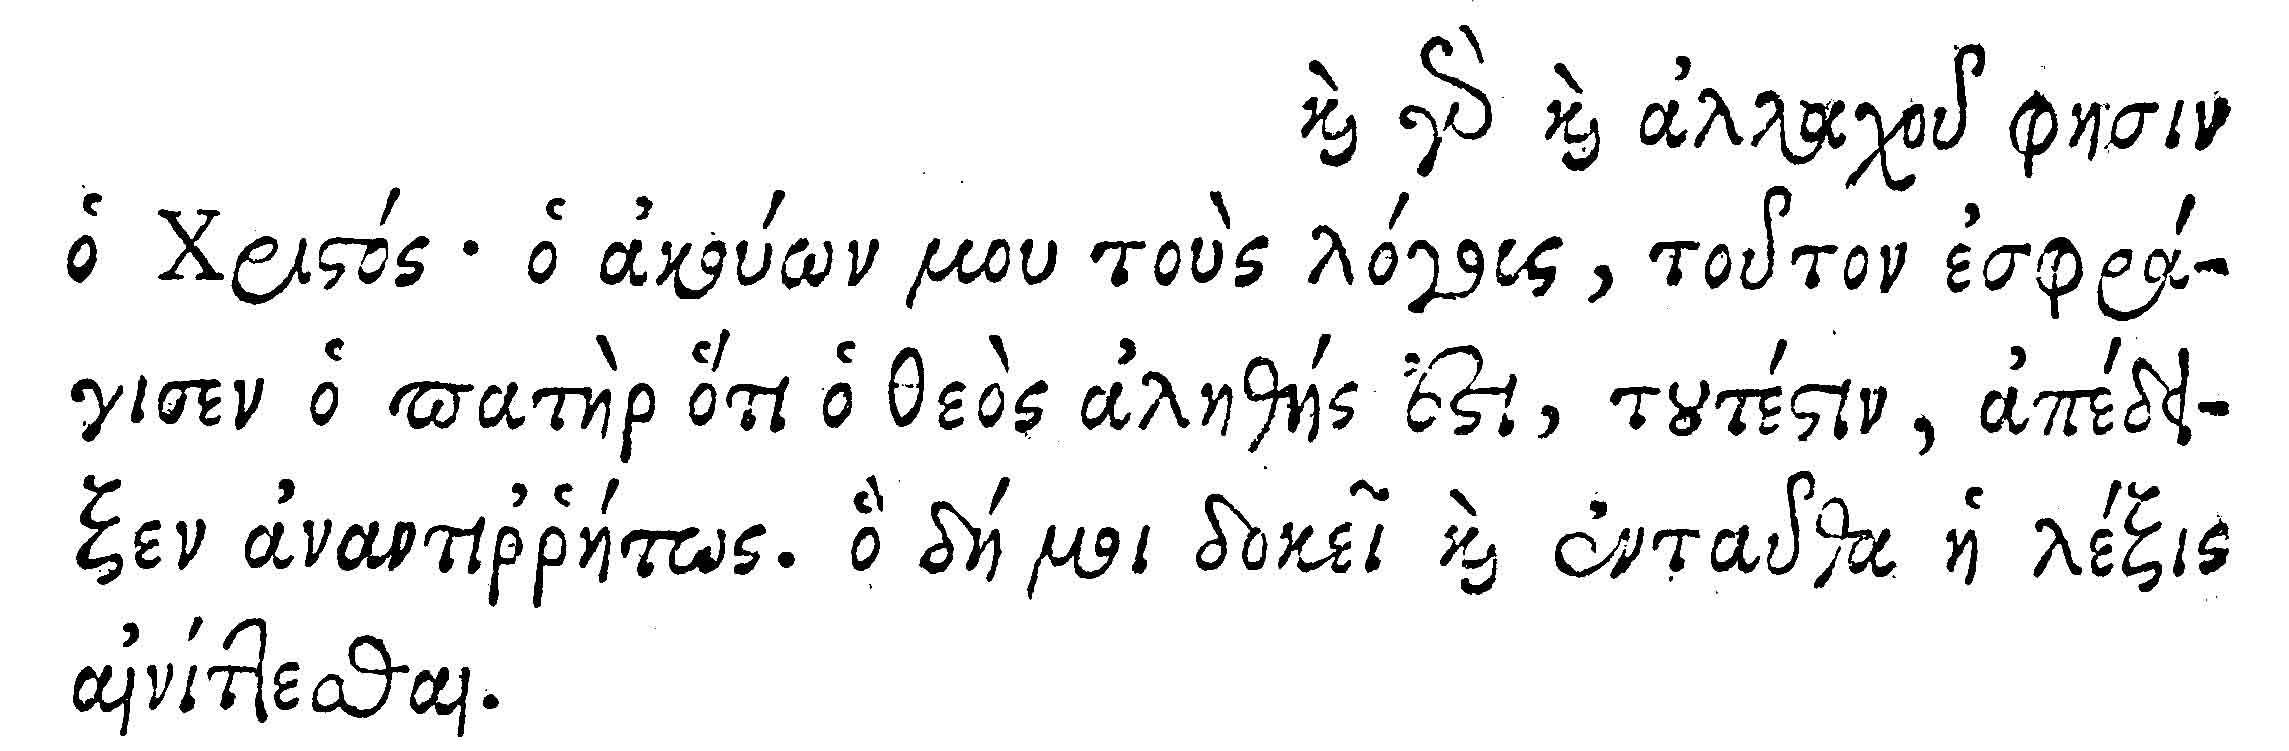 καὶ γὰρ καὶ ἀλλαχοῦ φησιν
ὁ Χριστός· ὁ ἀκούων μου τοὺς λόγους, τοῦτον ἐσφρά-
γισεν ὁ πατὴρ ὅτι ὁ θεὸς ἀληθής ἐστι, τουτέστιν, ἀπέδει-
ξεν ἀναντιῤῥήτως. ὃ δή μοι δοκεῖ καὶ ἐνταῦθα ἡ λέξις
αἰνίττεσθαι.